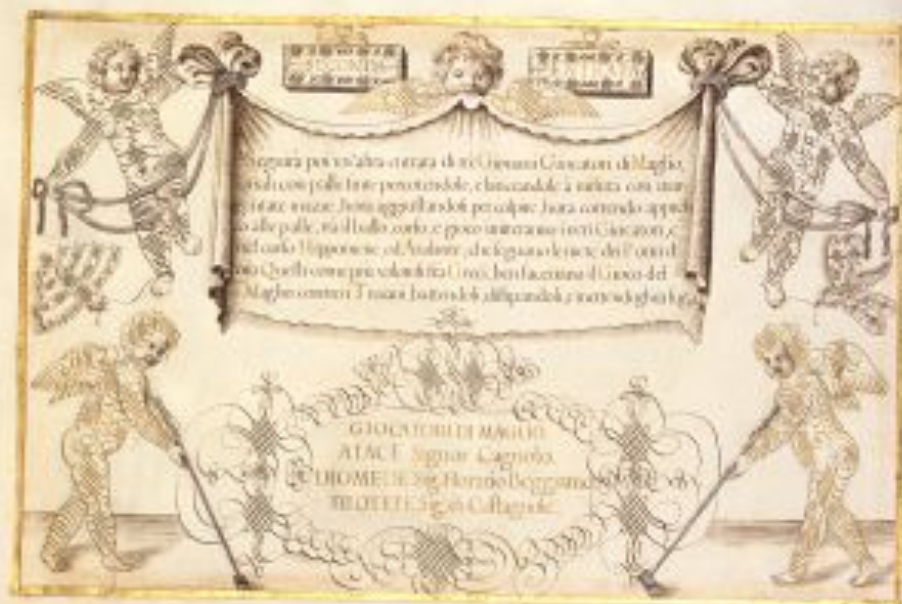 SECONDA
Seguirà poi un'altra entrata di tre Giovani Giocatori di Maglio,
quali con palle finte percotendole, e lanciandole à misura con
mazze, hora aggiustandosi per colpire, hora correndo
alle palle, trà il ballo, corso, e gioco uniranno i veri Giocatori, e
nel corso Hippomene, ed Atalante, che segnano le mete dei Ponti
Quelli come più valorosi frà Greci, ben facevano il Gioco del
Maglio contro i Troiani, battendoli, dissipandoli, e mettendogli in fuga
GIOCATORI DI MAGLIO
AIACE Signor Cagnolo.
DIOMEDE Sig. Horatio
FILOTETE Sig. di Castagnole.